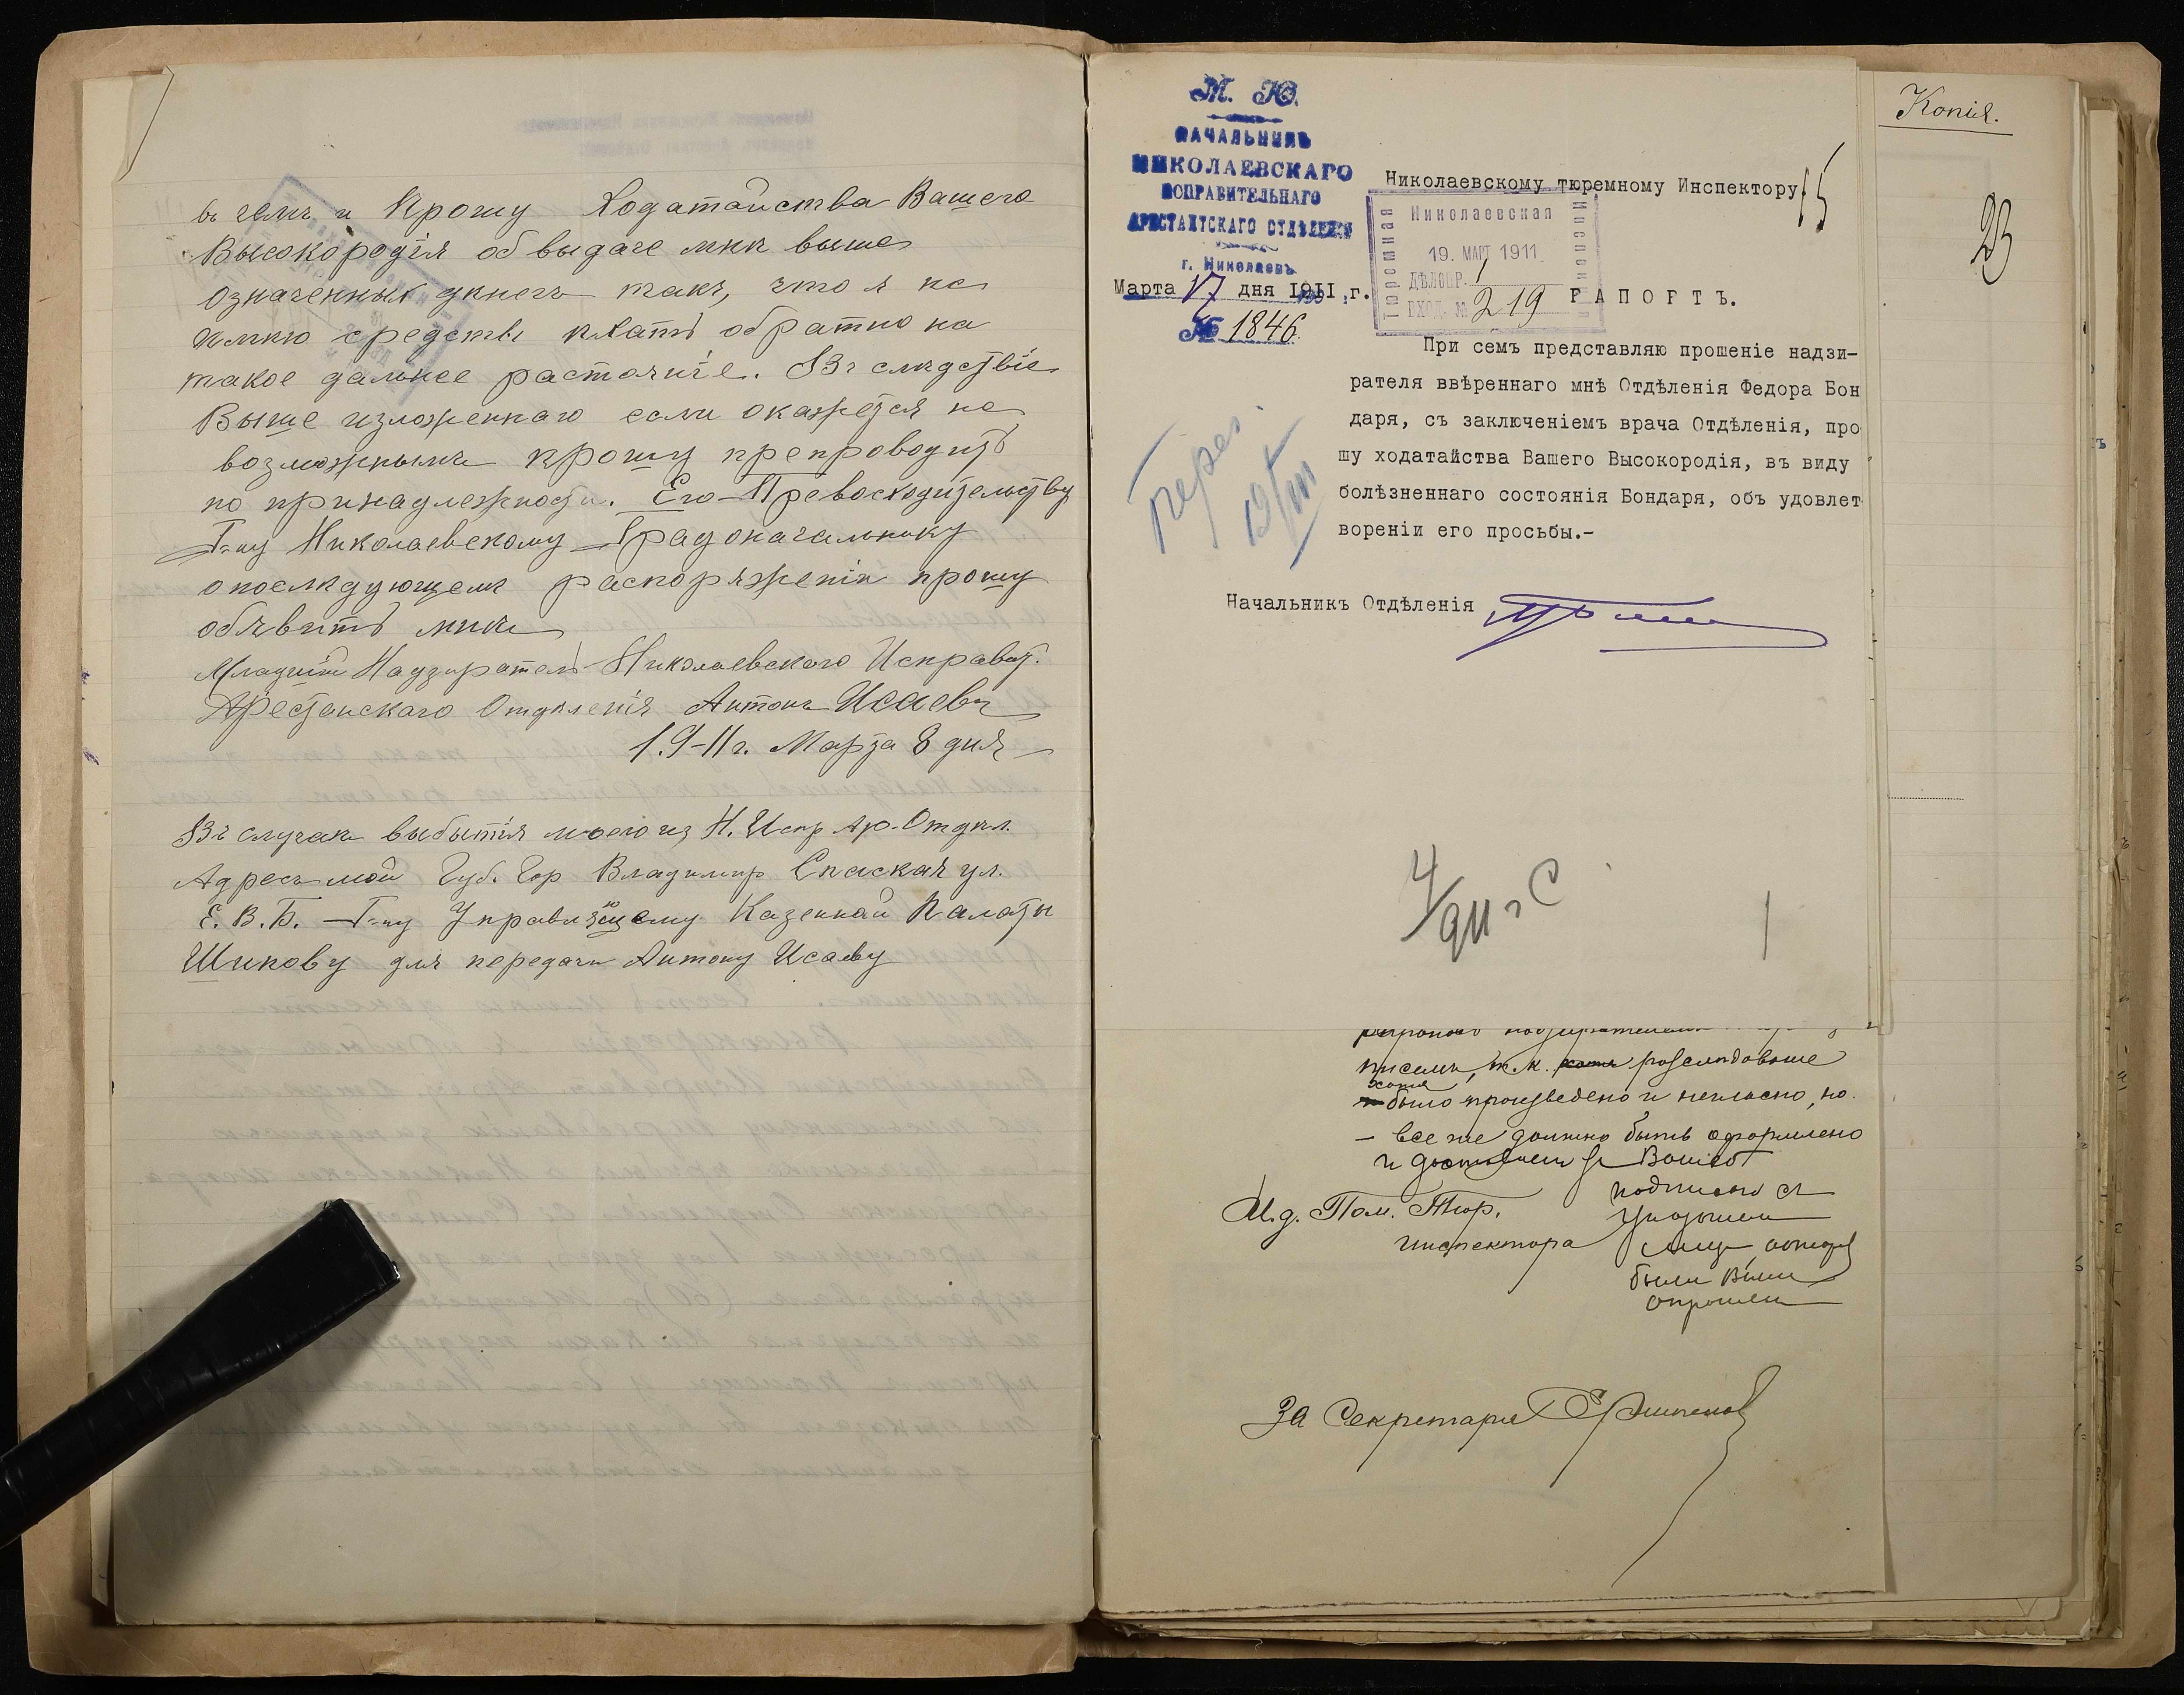 въ чемъ и Прошу Ходатайства Вашего
Высокородія об выдаче мнѣ выше
означенныхъ днегъ такъ, что я не
имѣю средствъ ѣхать обратно на
такое дальнее растояніе. Въ слѣдствіе
Выше изложеннаго если окажется не
возможнымъ прошу препроводить
по принадлежности. Его Превосходительству
Г-ну Николаевскому Градоначальнику
о послѣдующемъ распоряженіи прошу
объявить мнѣ
Младшій Надзиратель Николаевского Исправит.
Арестанскаго Отдѣленія Антонъ Исаевъ
1.9-11 г. Марта 8 дня
Въ случаѣ выбытія моего из Н. Испр. Ар. Отдѣл.
Адресъ мой Губ. Гор Владимир Спаская ул.
Е. В. Б. Г-ну Управляющему Казенной Палаты
Шикову для передачи Антону Исаеву
М. Ю.
НАЧАЛЬНИКЪ
НИКОЛАЕВСКАГО
ИСПРАВИТЕЛЬНАГО
АРЕСТАНТСКАГО ОТДѢЛЕНІЯ
г. Николаевъ
Марта 17 дня 1911 г.
№ 1846
Николаевскому тюремному Инспектору
15
Николаевская
Тюремная
Инспекція
19. МАР 1911
ДѢЛОПР. 1
ВХОД. № 219
РАПОРТЪ.
При семъ представляю прошеніе надзи-
рателя ввѣреннаго мнѣ Отдѣленія Федора Бон
даря, съ заключеніемъ врача Отдѣленія, про
шу ходатайства Вашего Высокородія, въ виду
болѣзненнаго состоянія Бондаря, объ удовлет
вореніи его просьбы.-
19/III
Начальникъ Отдѣленія
писемъ, т.к. разслѣдованіе
хотя
было произведено и негласно, но
- все же должно быть оформлено
И.д. Пом. Тюр.
инспектора
были Вами
опрошены
За Секретаря
Копія.
23